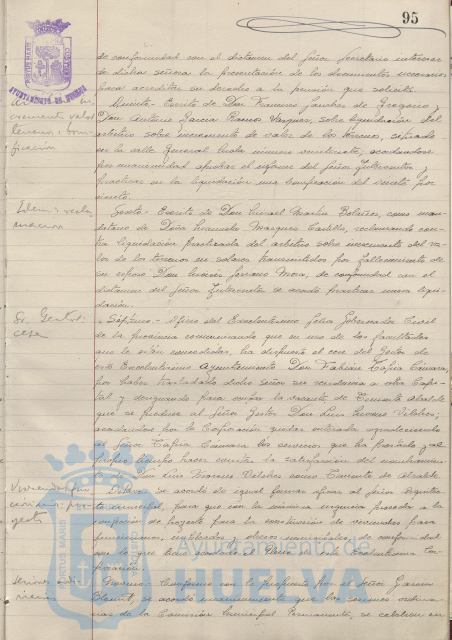 95
PORTUS MARIS
AYUNTAMIENTO DE HUELVA
de conformidad con el dictamen del Señor Secretario interesar
de dicha señora la presentación de los documentos necesarios
para acreditar su derecho a la pensión que solicita.
Quinto.- Escrito de Don Francisco Sánchez de Gregorio y
Don Antonio García Ramos Vázquez, sobre liquidación del
arbitrio sobre incremento de valor de los terrenos,
en la calle General Mola número veintisiete, acordándose
por unanimidad aprobar el informe del Señor Interventor y
practicar en la liquidación una bonificación del veinte por
ciento.
Idem:
Sexto.- Escrito de Don Manuel Martín Bolaños, como man-
datario de Doña Márquez Castillo, reclamando con-
tra liquidación practicada del arbitrio sobre incremento del va-
lor de los terrenos en solares transmitidos por fallecimiento de
su esposo Don Serrano Mora, de conformidad con el
dictamen del Señor Interventor se acordó practicar nueva liqui-
dación.
Sr. Gestor:
cese
Séptimo.- Oficio del Excelentísimo Señor Gobernador Civil
de la provincia comunicando que en uso de las facultades
que le están concedidas, ha dispuesto el cese del Gestor de
este Excelentísimo Ayuntamiento Don Fabián Tapia Cámara,
por haber trasladado dicho señor su residencia a otra Capi-
tal y designando para ocupar la vacante de Teniente Alcalde
que se produce al Señor Gestor Don Luis Vélchez;
acordándose por la Corporación quedar enterada agradeciendo
al Señor Tapia Cámara los servicios que ha prestado y al
propio tiempo hacer constar la satisfacción del nombramien-
to de Don Luis Vilches como Teniente de Alcalde.
Octavo.- Se acordó de igual forma oficiar al Señor Arquitec-
to municipal, para que con la máxima urgencia proceda a la
confección de proyecto para la construcción de viviendas para
funcionarios, empleados y obreros municipales, de conformidad
con lo que tiene acordado el Pleno de la Excelentísima Cor-
poración.
Noveno.- Conforme con lo propuesto por el Señor García
se acordó unánimemente que las sesiones ordina-
rias de la Comisión Municipal Permanente, se celebren en
PORTUS MARIS
Ayuntamiento de
HUELVA